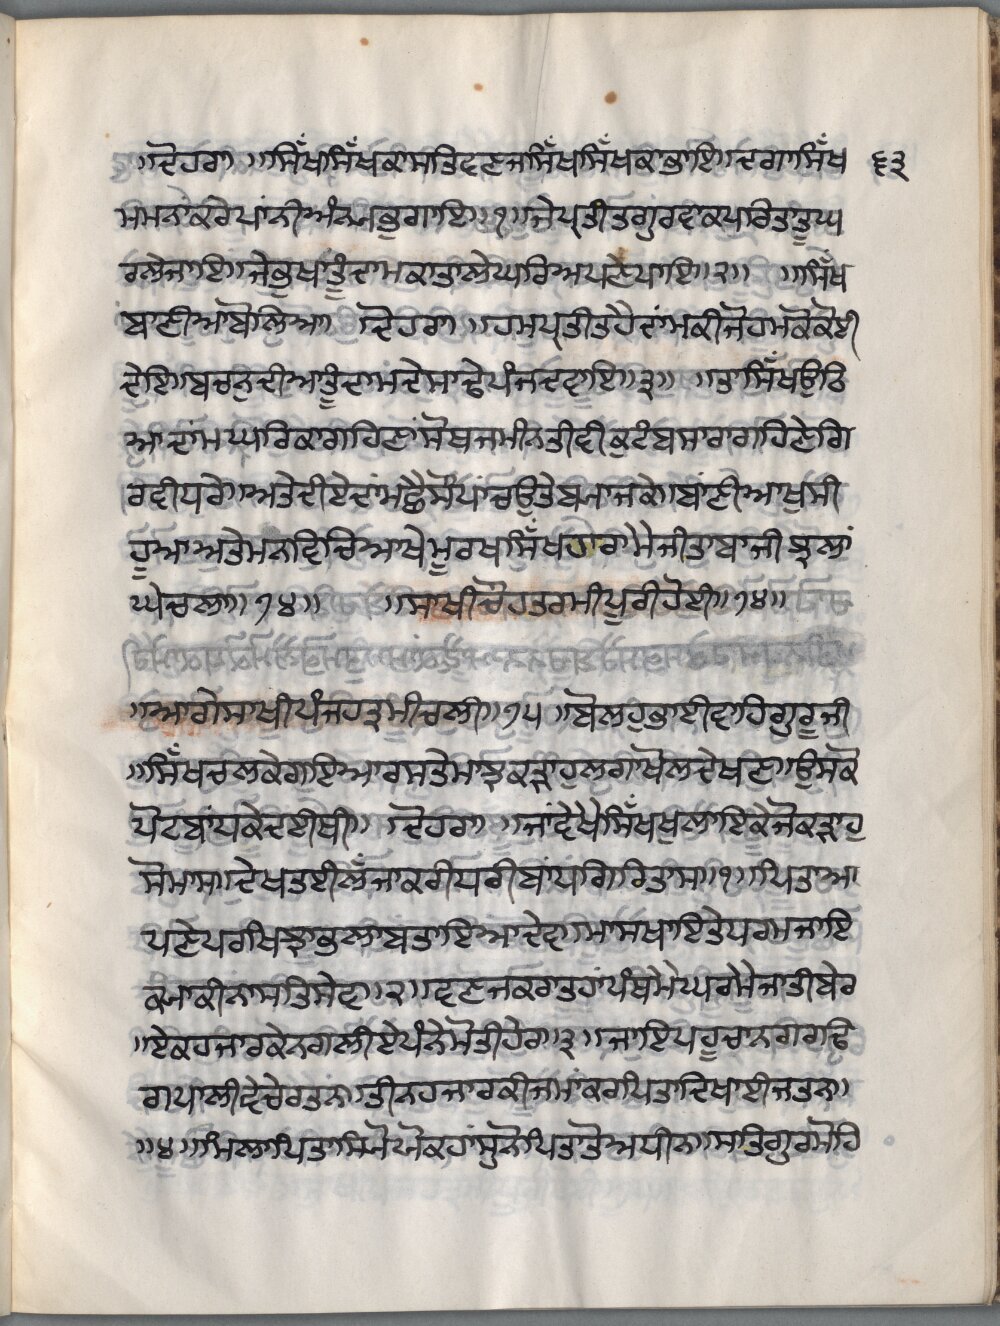 ॥ਦੋਹਰਾ॥ ॥ਸਿੱਖਾਂਸਿੱਖਕਾਸਤਿਵਣਜਸਿੱਖਸਿੱਖਕਾਭਾਇ॥ਦਗਾਸਿੱਖ ੬੩
ਸਮਨਾਕਰੇਪਾਨੀਅੰਨਅਭੁਗਾਇ॥੧॥ਜੇਪ੍ਰਤੀਤਗੁਰਵਾਕਪਰਿਤਾਤੂਘ
ਰਲੇਜਾਇ॥ਜੇਭੁਖਾਤੂੰਦਾਮਕਾਤਾਲੇਘਰਿਅਪਣੇਪਾਇ॥੨॥ ॥ਸਿੱਖ
ਬਾਣੀਆਬੋਲਿਆ॥ ਦੋਹਰਾ॥ ॥ਹਮਪ੍ਰਤੀਤਹੈਦਾਮਕੀਜੋਹਮਕੋਕੋਈ
ਦੇਇ॥ਬਚਨਦੀਆਤੂੰਦਾਮਦੇਸਾਢੇਪੰਜਦਵਾਇ॥੩॥ ॥ਤਾਸਿੱਖਉਨਿ
ਆਦਾਮਘਰਿਕਾਗਹਿਣਾਸੋਬਜਮੀਨਤੀਵੀਕੁਟੰਬਸਾਰਾਗਹਿਣੇਗਿ
ਰਵੀਧਰੇ॥ਅਤੇਦੀਏਦਾਮਛੈਸੌਪਾਂਚਉਤੇਬਆਜਕੇ॥ਬਾਣੀਆਖੁਸੀ
ਹੂਆਅਤੇਮਨਵਿਚਿਆਖੇਮੂਰਖਸਿੱਖਹਾਰਾਮੈਜੀਤਾਬਾਜੀਝਲਾਂ
ਘੇਚਲਾ॥੧੪॥ ॥ਸਾਖੀਚੌਹਤਰਮੀਪੂਰੀਹੋਈ॥੧੪॥
॥ਆਗੇਸਾਖੀਪੰਜਹਤ੍ਰਮੀਚਲੀ॥੭੫॥ਬੋਲਹੁਭਾਈਵਾਹਿਗੁਰੂਜੀ
॥ਸਿੱਖਚਲਕੇਗਇਆਰਸਤੇਸਾਝਕੜਾਹੁਲਗਾਖੋਲਦੇਖਣਾ॥ਉਸਕੋ
ਪੋਟਬਾਂਧਕੇਦਈਥੀ॥ ਦੋਹਰਾ॥ ॥ਜਾਂਵੇਖੈਸਿੱਖਖੁਲਾਇਕੈਜੋਕੜਾਹੁ
ਸੋਮਾਸ॥ਦੇਖਤਈਲੰਜਾਕਰੀਧਰੀਬਾਂਧਗਿਰਿਤਾਸ॥੧॥ਪਿਤਾਆ
ਪਣੇਪਰਖਿਝਾਭਲਾਬਤਾਇਆਦੇਵ॥ਮਾਸਖਾਇਤੇਧਰਮਜਾਇ
ਕਆਕੀਨਾਸਤਿਸੇਵ॥੨॥ਵਣਜਕਰਾਤਹਾਂਪੰਥਮੇਘਰਮੈਜਾਤੀਬੇਰ
॥ਏਕਹਜਾਰਕੇਨਗਲੀਏਪੰਨੇਮੋਤੀਹੇਰ॥੩॥ਜਾਇਪਹੂਚਾਨਗਰਵਿ
ਗਪਾਲੀਵੇਚੇਰਤਨ॥ਤੀਨਹਜਾਰਕੀਜਮਾਂਕਰਿਪਿਤਾਦਿਖਾਈਜਤਨ॥
॥੪॥ਮਿਲਾਪਿਤਾਸਿਮੋਘੋਕਹਾਂਸੁਨੋਪਿਤਾਤੋਅਧੀਨ॥ਸਤਿਗੁਰਮੋਹਿ